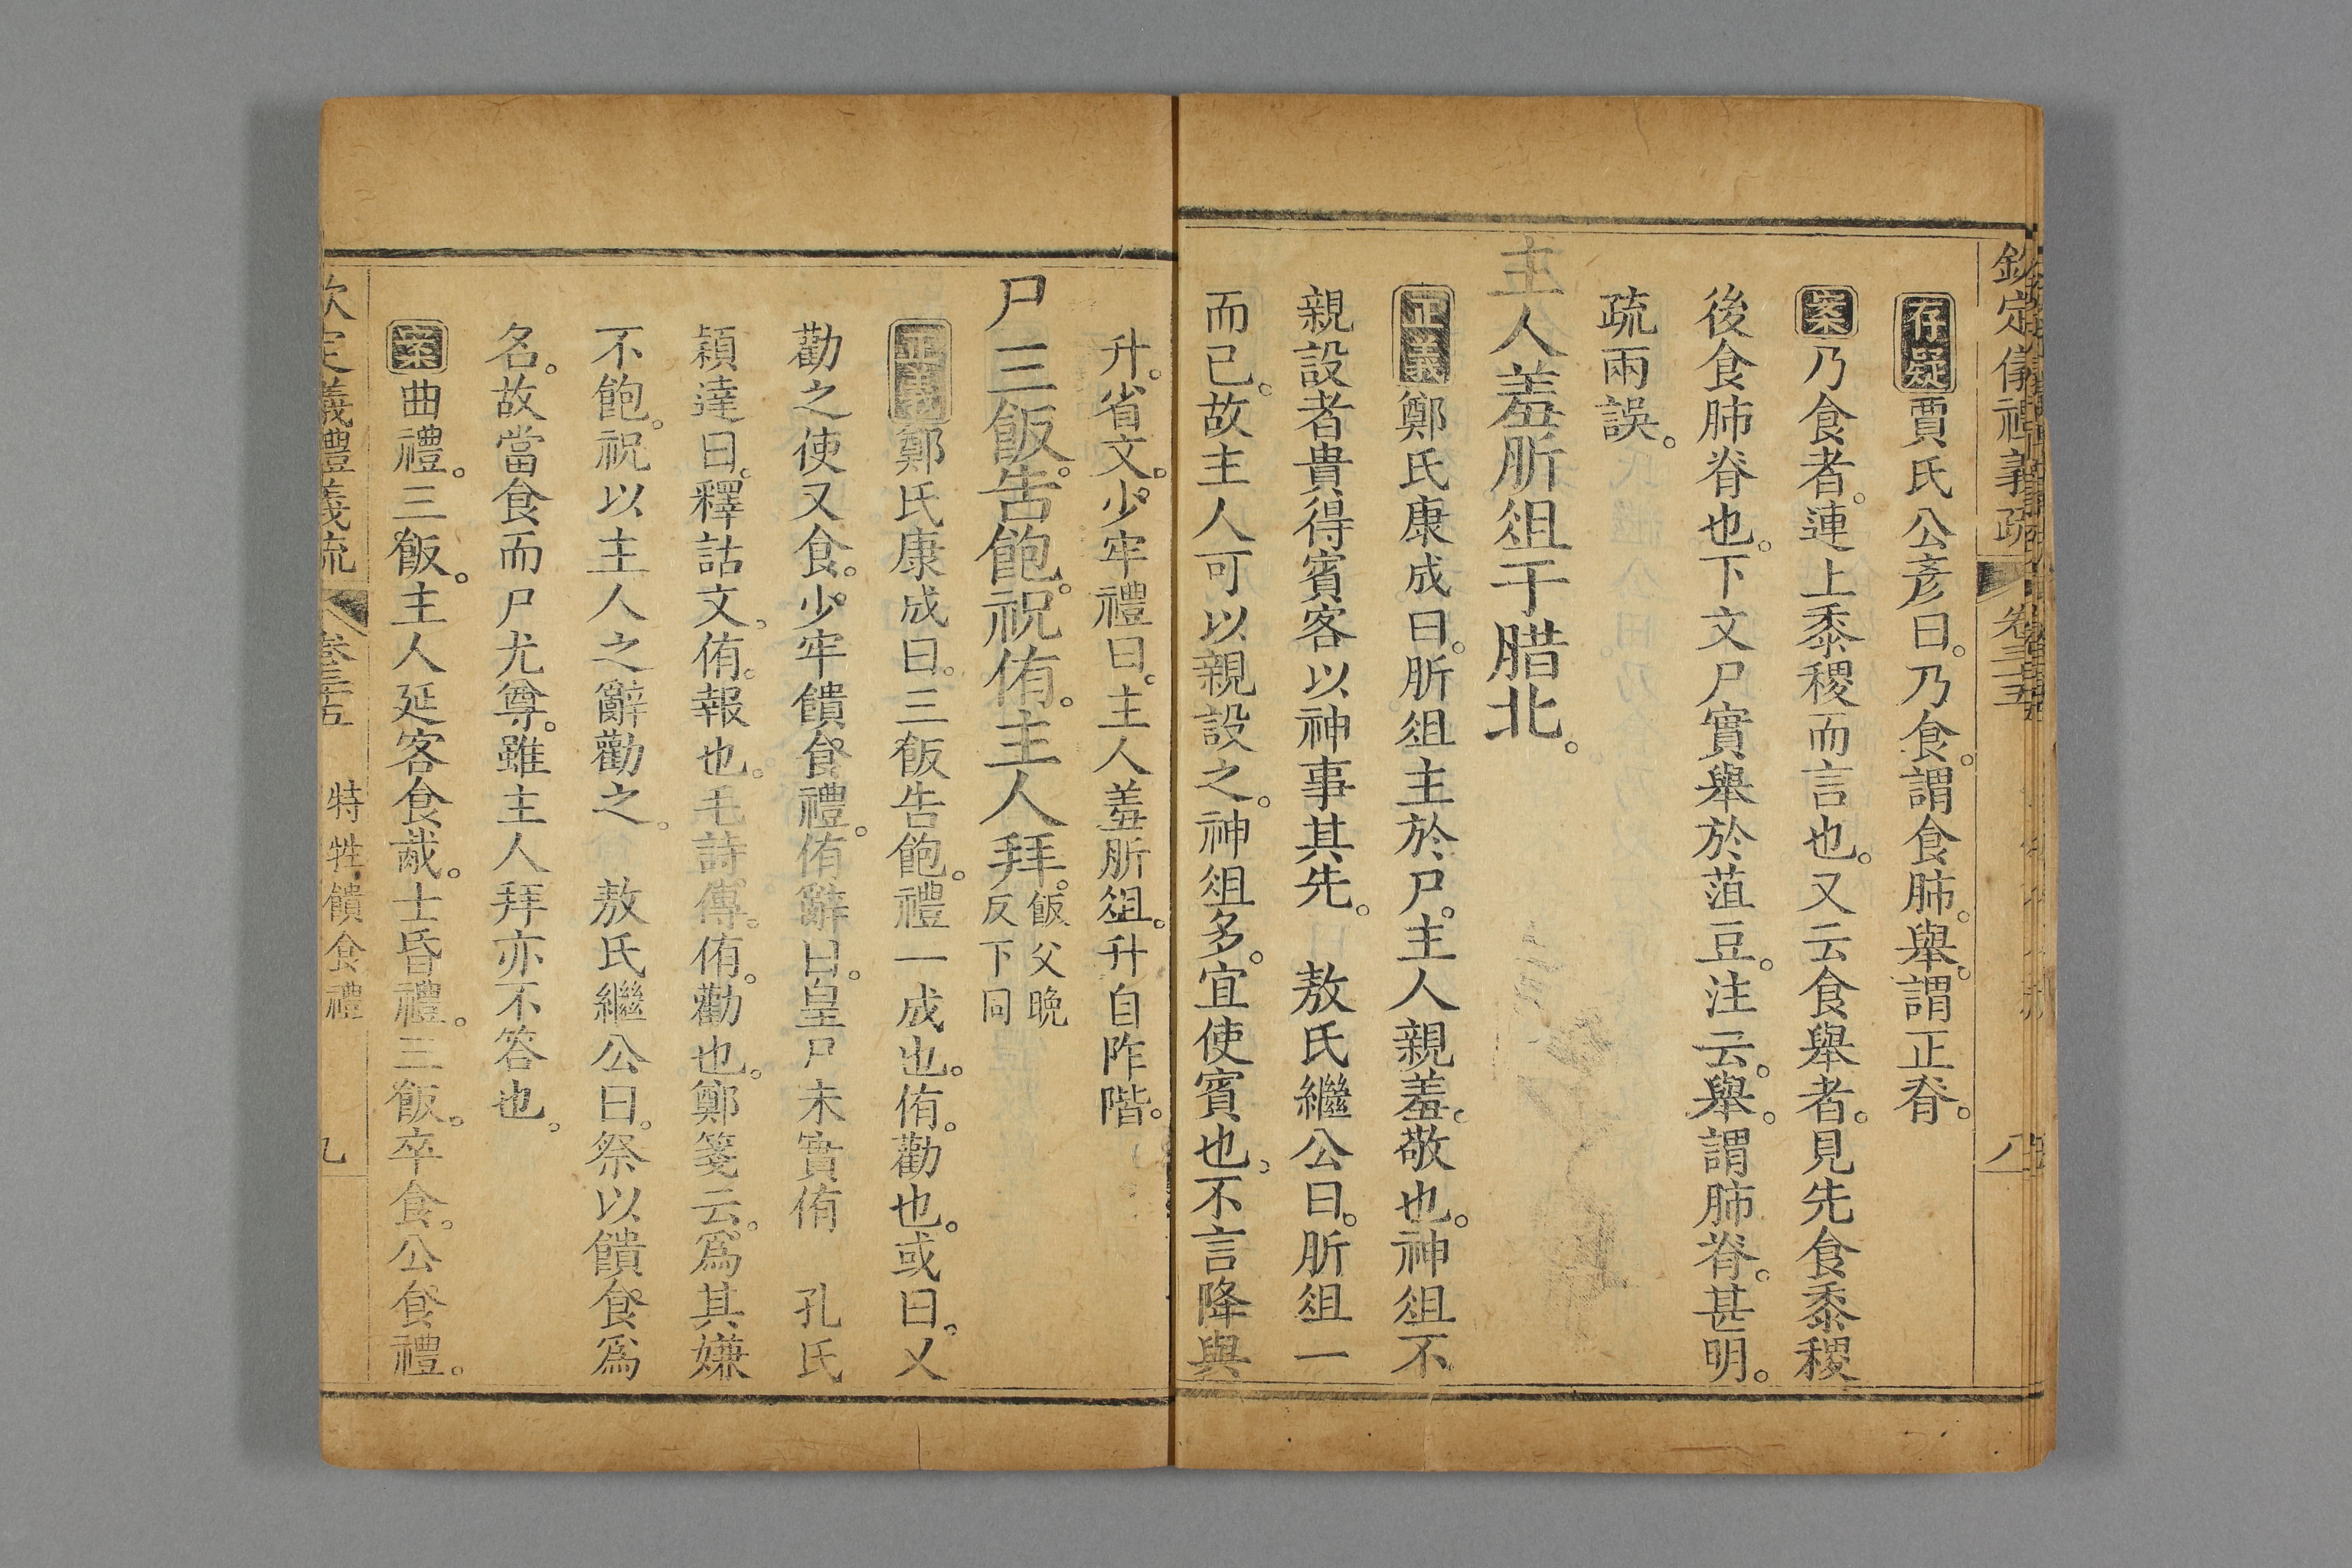 欽定儀禮義疏 卷三十五 八
存疑賈氏公彥曰。乃食。謂食肺。舉。謂正脊。
案乃食者。連上黍稷而言也。又云食舉者。見先食黍稷
後食肺脊也。下文尸實舉於菹豆。注云。舉。謂肺脊。甚明。
疏兩誤。
主人羞肵俎于腊北。
正義鄭氏康成曰。肵俎主於尸。主人親羞。敬也。神俎不
親設者貴得賓客以神事其先。 敖氏繼公曰。肵俎一
而已。故主人可以親設之。神俎多。宜使賓也。不言降與
升。省文。少牢禮曰。主人羞肵俎。升自阼階。
尸三飯。告飽。祝侑。主人拜。飯父晚反下同
正義鄭氏康成曰。三飯告飽。禮一成也。侑。勸也。或曰。又
勸之使又食。少牢饋食禮。侑辭曰。皇尸未實侑 孔氏
穎達曰。釋詁文。侑。報也。毛詩傳。侑。勸也。鄭箋云。爲其嫌
不飽。祝以主人之辭勸之。 敖氏繼公曰。祭以饋食爲
名。故當食而尸尤尊。雖主人拜亦不答也。
案曲禮。三飯。主人延客食胾。士昏禮。三飯。卒食。公食禮。
欽定儀禮義疏 卷三十五 特牲饋食禮 九